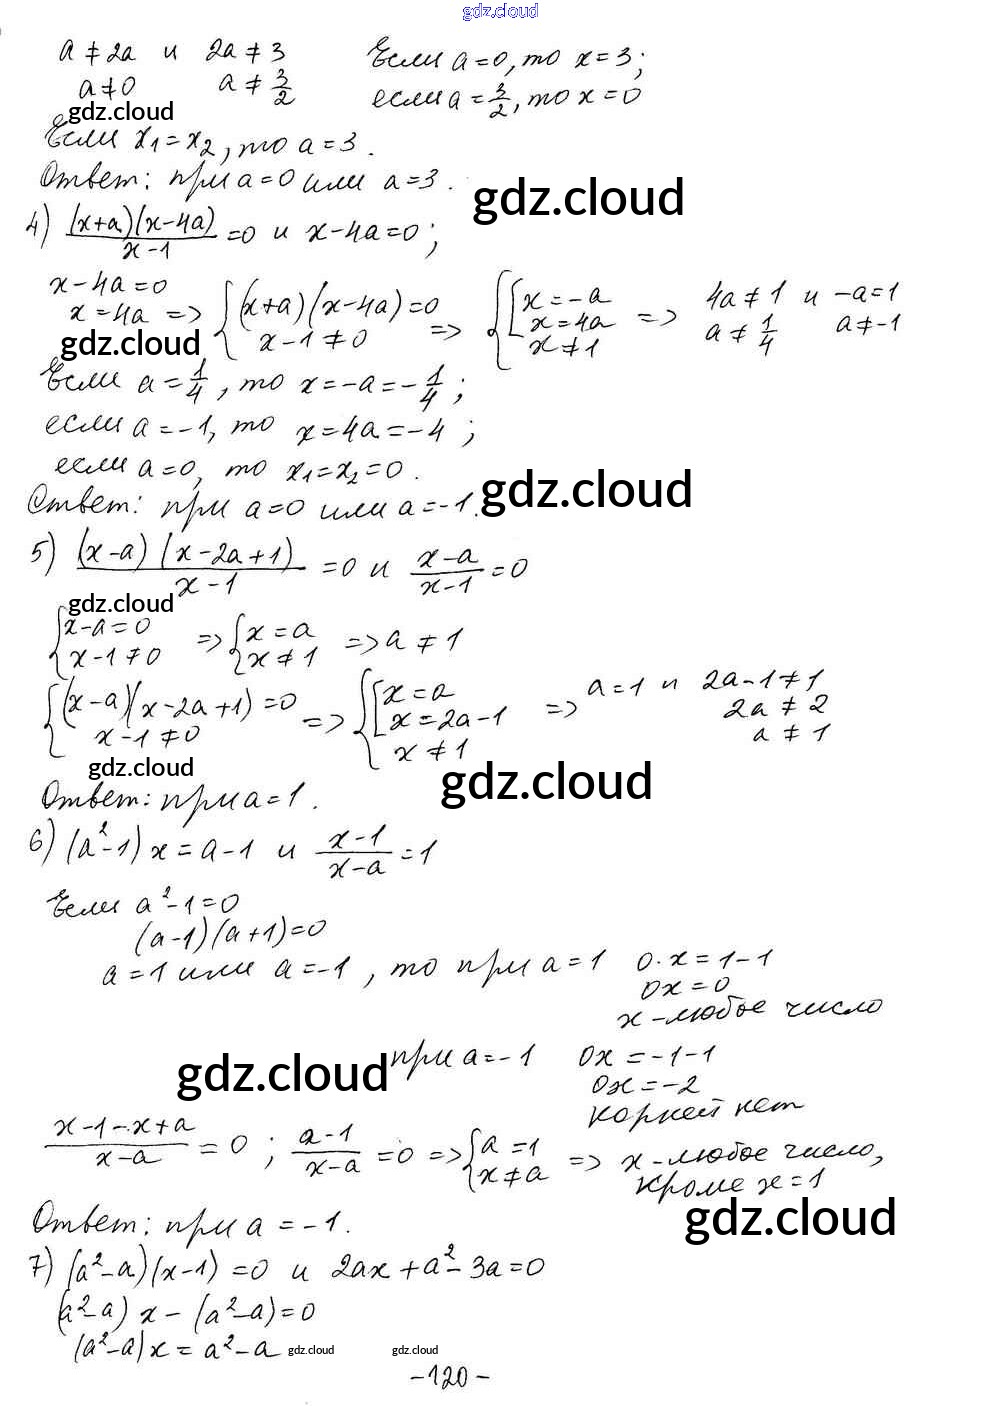 gdz.cloud
a ≠ 2a и 2a ≠ 3 Если a=0, то x=3;
a≠0 a ≠ 3/2 если a = 3/2, то x=0
gdz.cloud
Если x₁=x₂, то a=3.
Ответ: при a=0 или a=3.
gdz.cloud
4) (x+a)(x-4a)/(x-1) =0 и x-4a=0;
x-4a=0
x=4a => { (x+a)(x-4a)=0 x-1≠0 => { [ x=-a x=4a x≠1 => 4a≠1 и -a=1
a≠1/4 a≠-1
gdz.cloud
Если a=1/4, то x=-a=-1/4;
если a=-1, то x=4a=-4;
если a=0, то x₁=x₂=0.
gdz.cloud
Ответ: при a=0 или a=-1.
5) (x-a)(x-2a+1)/(x-1) =0 и (x-a)/(x-1) =0
gdz.cloud
{ x-a=0 x-1≠0 => { x=a x≠1 => a≠1
{ (x-a)(x-2a+1)=0 x-1≠0 => { [ x=a x=2a-1 x≠1 => a=1 и 2a-1≠1
2a≠2
a≠1
gdz.cloud
gdz.cloud
Ответ: при a=1.
6) (a²-1)x=a-1 и (x-1)/(x-a) =1
Если a²-1=0
(a-1)(a+1)=0
a=1 или a=-1, то при a=1 0·x=1-1
0x=0
x-любое число
gdz.cloud
при a=-1 0x=-1-1
0x=-2
корней нет
(x-1-x+a)/(x-a) =0; (a-1)/(x-a) =0 => { a=1 x≠a => x-любое число,
кроме x=1
gdz.cloud
Ответ: при a=-1.
7) (a²-a)(x-1)=0 и 2ax+a²-3a=0
(a²-a)x-(a²-a)=0
(a²-a)x=a²-a
gdz.cloud gdz.cloud
-120-